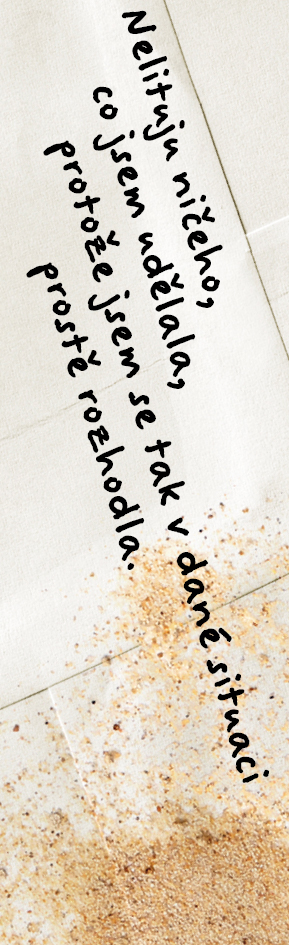 Nelituju ničeho,
co jsem udělala,
protože jsem se tak v dané situaci
prostě rozhodla.